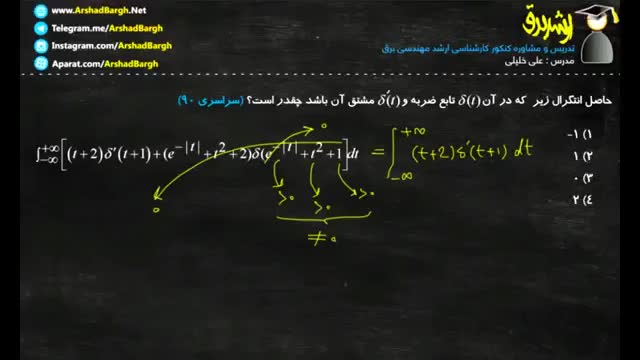 www.ArshadBargh.Net
Telegram.me/ArshadBargh
Instagram.com/ArshadBargh
Aparat.com/ArshadBargh
ارشد برق
تدریس و مشاوره کنکور کارشناسی ارشد مهندسی برق
مدرس : علی خلیلی
حاصل انتگرال زیر که در آن δ(t) تابع ضربه و δ′(t) مشتق آن باشد چقدر است؟ (سراسری ۹۰)
۱) ۱-
۲) ۱
۳) ۰
۴) ۲
∫_{-∞}^{+∞}[(t+2)δ′(t+1)+(e^{-|t|}+t^2+2)δ(e^{-|t|}+t^2+1]dt = ∫_{-∞}^{+∞} (t+2) δ′(t+1) dt
0
0
>0 >0 >0
≠0